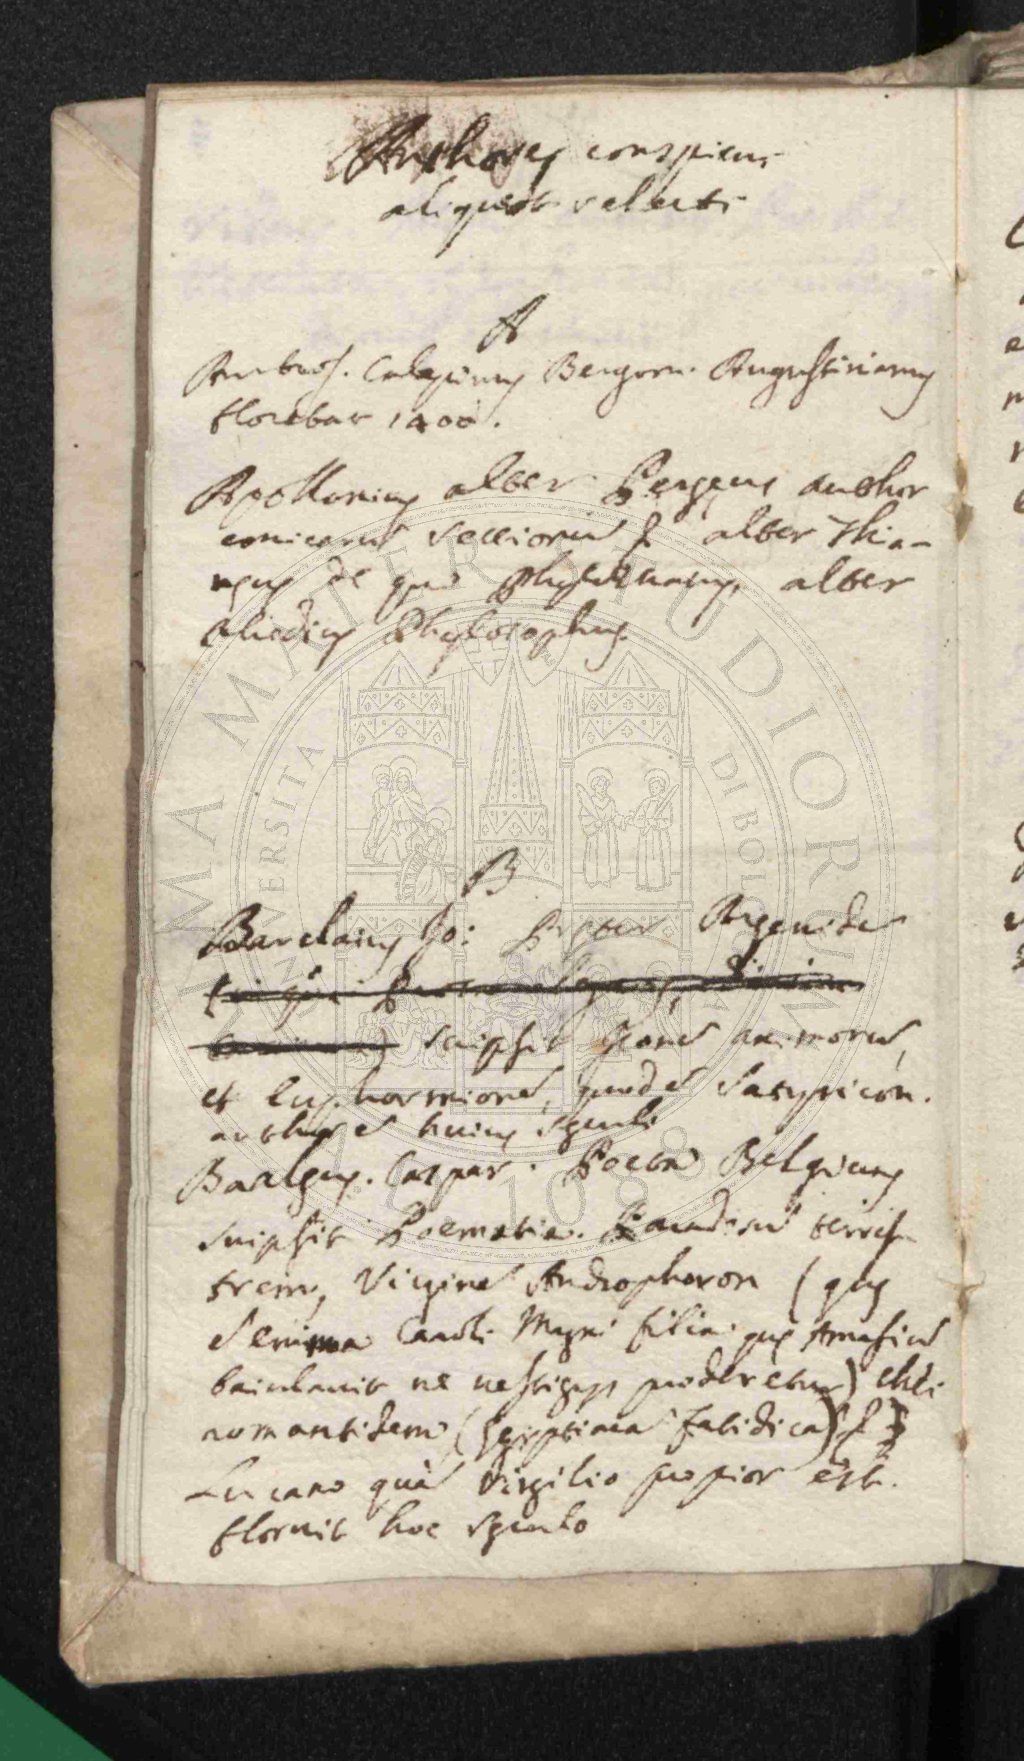 Authores conspicui
aliquot selecti
A
Ambros. Calepinus Bergom. Augustinianus
florebat 1400.
Apollonius alter Pergeus author
conicarum sectionum & alter Thia-
neus de quo Phylostratus, alter
Phylosophus
B
Barclaius Jo: Preter Argenide
scripsit Iconem animorum,
et Euphormionem, quod est Satyricon.
author est huius seculi
Barleus. Caspar. Poeta Belgicus
scripsit Poematia. Paradisum terres-
trem, Virginem Androphoron (que
est emma Caroli Magni filia que Amasium
baiulavit ne vestigys proderetur)
romantidem (Egyptiaca fatidica) &
Lucano quam Virgilio propior est.
floruit hoc seculo
ALMA MATER STUDIORUM
UNIVERSITA DI BOLOGNA
A.D. 1088